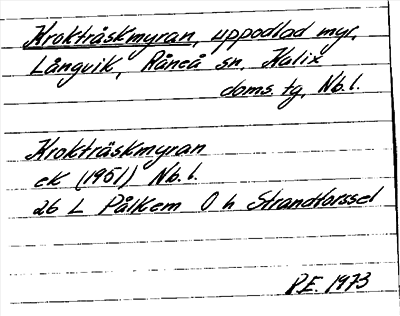 Krokträskmyran, uppodlad myr,
Långvik, Råneå sn. Kalix
doms. tg, Nb. l.
Krokträskmyran
ek (1951) Nb. l.
26 L Pålkem O h Strandforssel
P.E. 1973